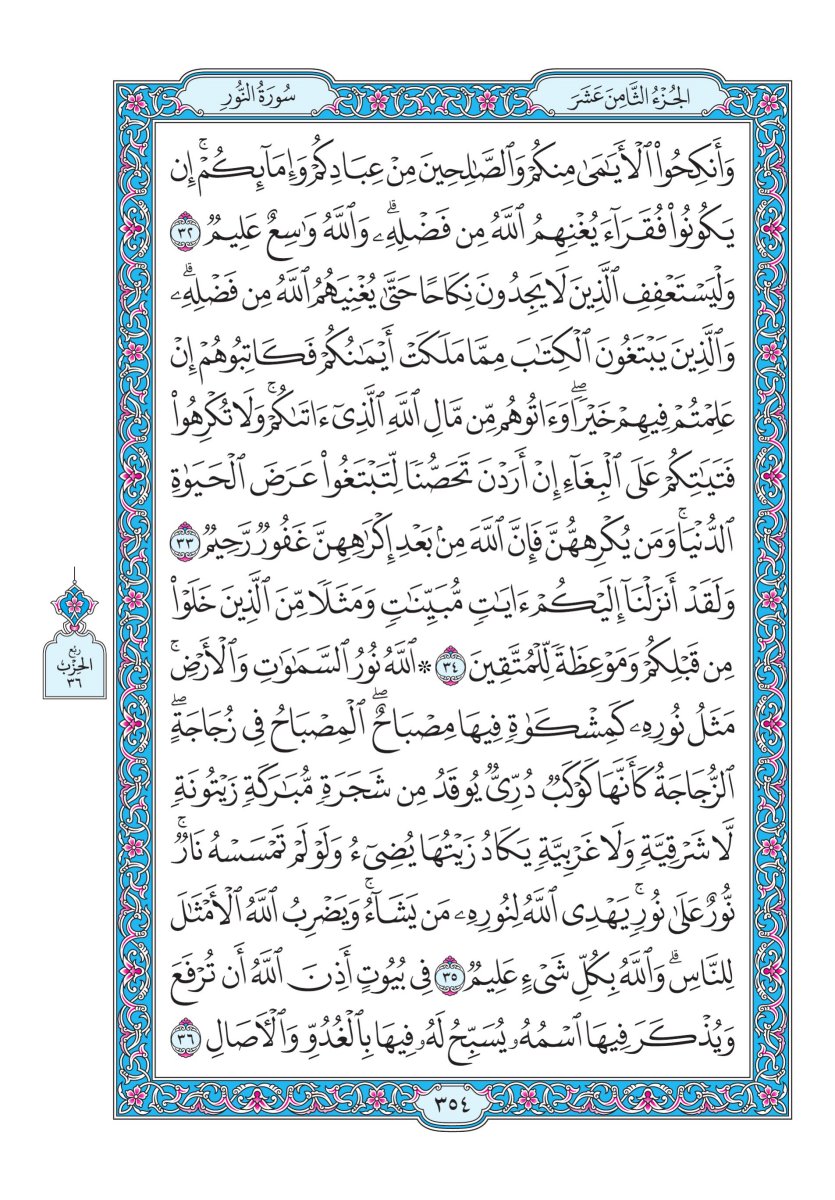 الجُزْءُ الثَّامِنَ عَشَرَ
سُورَةُ النُّورِ
وَأَنكِحُواْ ٱلْأَيَٰمَىٰ مِنكُمْ وَٱلصَّٰلِحِينَ مِنْ عِبَادِكُمْ وَإِمَآئِكُمْۚ إِن
يَكُونُواْ فُقَرَآءَ يُغْنِهِمُ ٱللَّهُ مِن فَضْلِهِۦۗ وَٱللَّهُ وَٰسِعٌ عَلِيمٌ ٣٢
وَلْيَسْتَعْفِفِ ٱلَّذِينَ لَا يَجِدُونَ نِكَاحًا حَتَّىٰ يُغْنِيَهُمُ ٱللَّهُ مِن فَضْلِهِۦۗ
وَٱلَّذِينَ يَبْتَغُونَ ٱلْكِتَٰبَ مِمَّا مَلَكَتْ أَيْمَٰنُكُمْ فَكَاتِبُوهُمْ إِنْ
عَلِمْتُمْ فِيهِمْ خَيْرًاۖ وَءَاتُوهُم مِّن مَّالِ ٱللَّهِ ٱلَّذِىٓ ءَاتَىٰكُمْۚ وَلَا تُكْرِهُواْ
فَتَيَٰتِكُمْ عَلَى ٱلْبِغَآءِ إِنْ أَرَدْنَ تَحَصُّنًا لِّتَبْتَغُواْ عَرَضَ ٱلْحَيَوٰةِ
ٱلدُّنْيَاۚ وَمَن يُكْرِههُّنَّ فَإِنَّ ٱللَّهَ مِنۢ بَعْدِ إِكْرَٰهِهِنَّ غَفُورٌ رَّحِيمٌ ٣٣
وَلَقَدْ أَنزَلْنَآ إِلَيْكُمْ ءَايَٰتٍ مُّبَيِّنَٰتٍ وَمَثَلًا مِّنَ ٱلَّذِينَ خَلَوْاْ
مِن قَبْلِكُمْ وَمَوْعِظَةً لِّلْمُتَّقِينَ ٣٤ * ٱللَّهُ نُورُ ٱلسَّمَٰوَٰتِ وَٱلْأَرْضِۚ
مَثَلُ نُورِهِۦ كَمِشْكَوٰةٍ فِيهَا مِصْبَاحٌۖ ٱلْمِصْبَاحُ فِى زُجَاجَةٍۖ
ٱلزُّجَاجَةُ كَأَنَّهَا كَوْكَبٌ دُرِّىٌّ يُوقَدُ مِن شَجَرَةٍ مُّبَٰرَكَةٍ زَيْتُونَةٍ
لَّا شَرْقِيَّةٍ وَلَا غَرْبِيَّةٍ يَكَادُ زَيْتُهَا يُضِىٓءُ وَلَوْ لَمْ تَمْسَسْهُ نَارٌۚ
نُّورٌ عَلَىٰ نُورٍۚ يَهْدِى ٱللَّهُ لِنُورِهِۦ مَن يَشَآءُۚ وَيَضْرِبُ ٱللَّهُ ٱلْأَمْثَٰلَ
لِلنَّاسِۗ وَٱللَّهُ بِكُلِّ شَىْءٍ عَلِيمٌ ٣٥ فِى بُيُوتٍ أَذِنَ ٱللَّهُ أَن تُرْفَعَ
وَيُذْكَرَ فِيهَا ٱسْمُهُۥ يُسَبِّحُ لَهُۥ فِيهَا بِٱلْغُدُوِّ وَٱلْءَاصَالِ ٣٦
ربع
الحزب
٣٦
٣٥٤